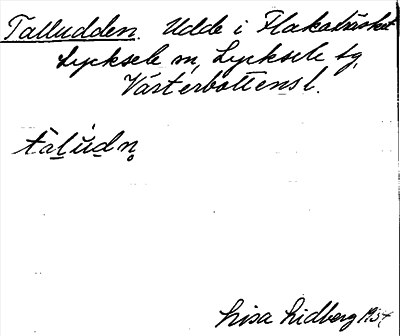 Talludden. Udde i Flakaträsket
Lycksele sn, Lycksele sg,
Västerbottens l.
taludn̥
Lisa Lidberg